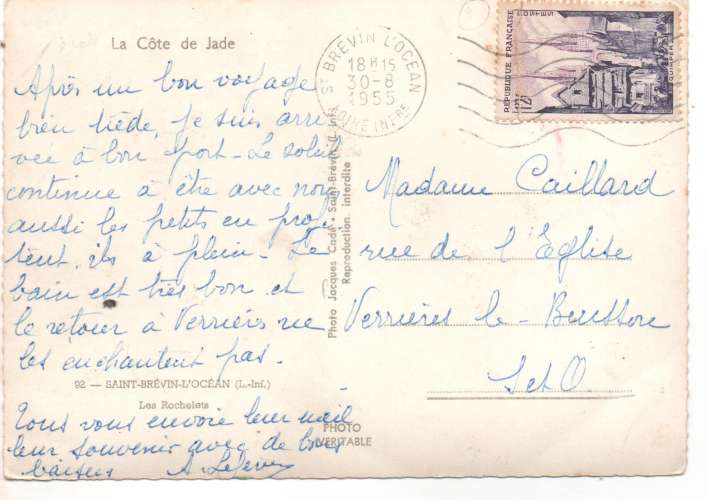 La Côte de Jade
Après un bon voyage
bien tiède, je suis arri
vée à bon port - Le soleil
continue à être avec nous
aussi les petits en profi
tent, ils à plein - Le
bain est très bon et
le retour à Verrières ne
les enchantent pas.
92 — SAINT-BRÉVIN-L'OCÉAN (L.-Inf.)
Les Rochelets
Tous vous envoie leur meil
leur souvenir avec de bons
baisers A. Lefèvre
Photo Jacques Cadé - Saint-Brévin (L.-Inf.)
Reproduction interdite
PHOTO
VÉRITABLE
ST BREVIN L'OCEAN
18H15
30-8
1955
LOIRE INFRE
REPUBLIQUE FRANÇAISE
POSTES
QUIMPER
12F
Madame Caillard
rue de l'Eglise
Verrières le Buisson
S et O.